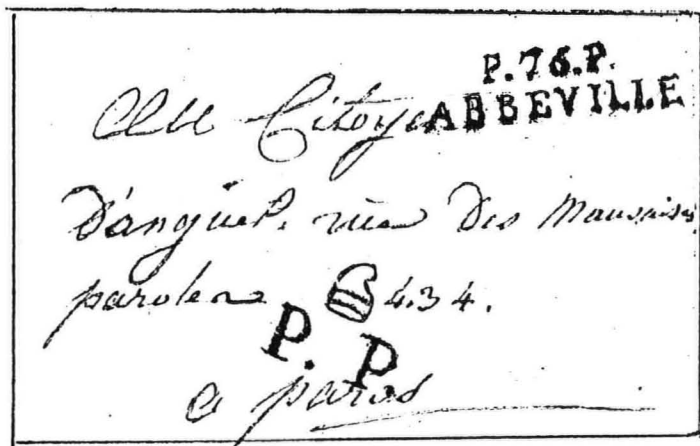 P.76.P.
ABBEVILLE
Au Citoye
D'anguel. rue Des Mauvaises
paroles 434.
P. P.
a paris